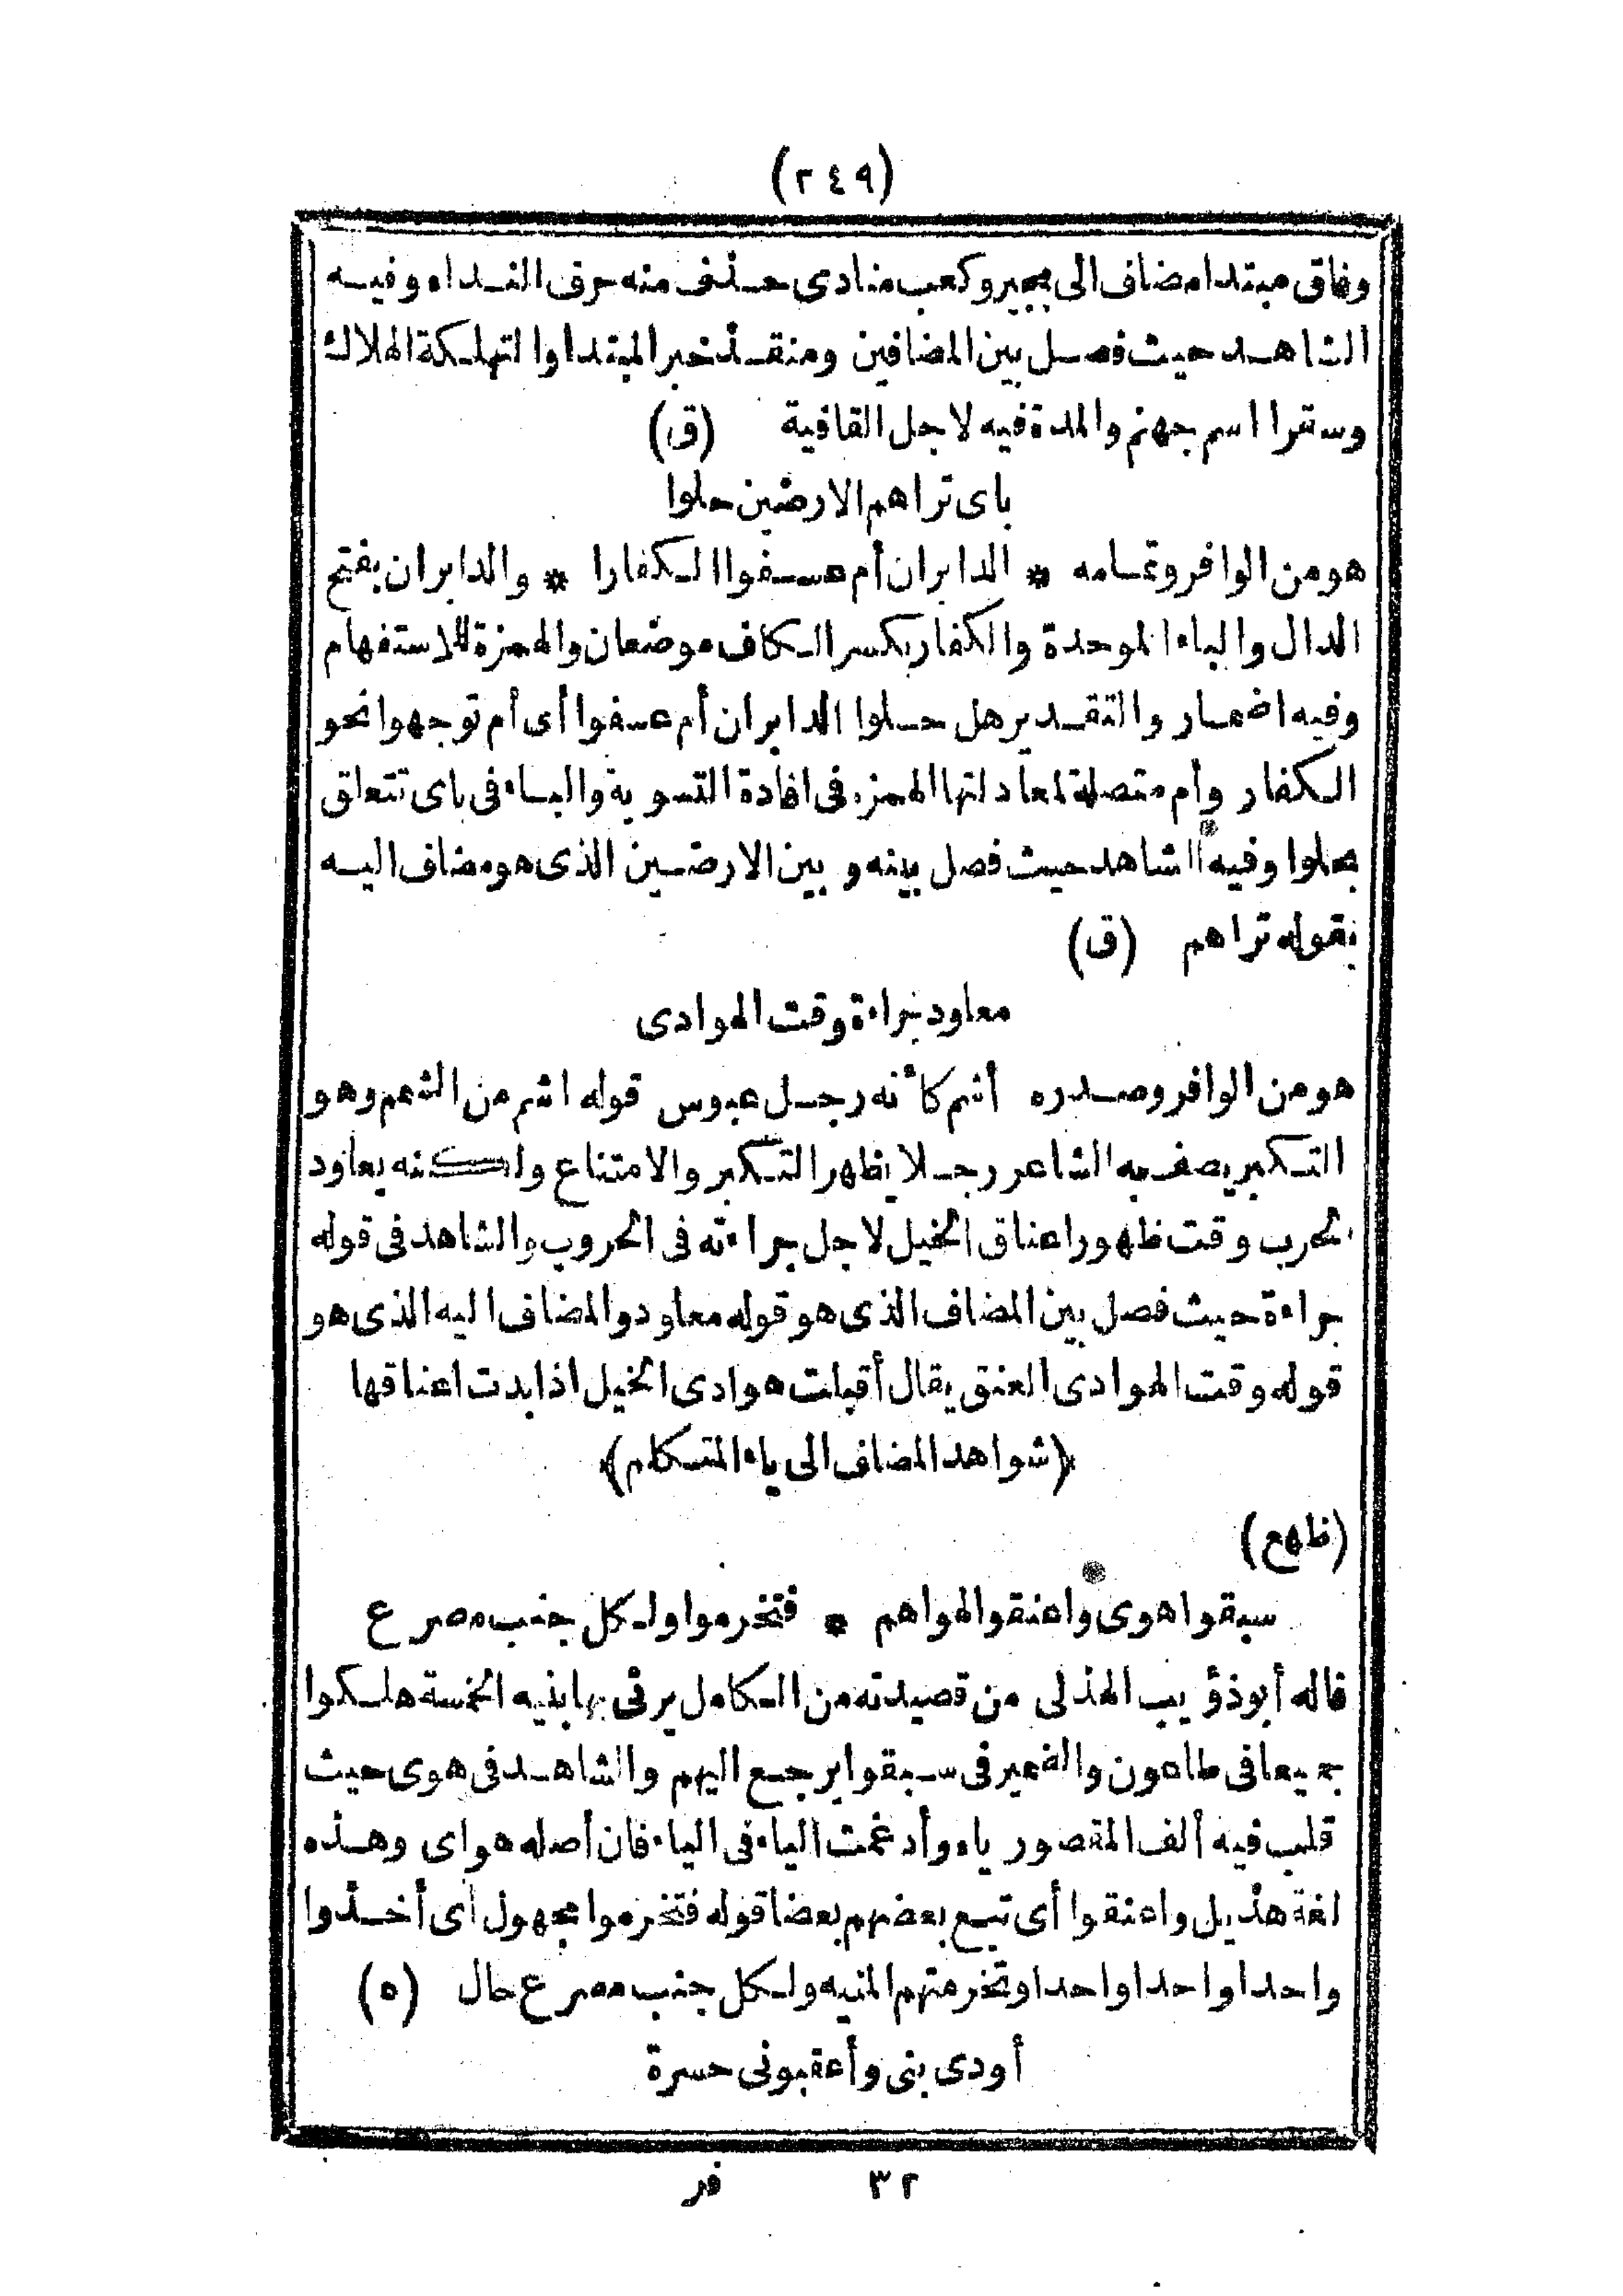 (٢٤٩)
وفاق مبتدا مضاف الى بجير وكعب منادى حذف منه حرف النداء وفيه
الشاهد حيث فصل بين المضافين ومنقذ خبر المبتدا والتهلكة الهلاك
وسقرا اسم جهنم والمدة فيه لاجل القافية (ق)
باى تراهم الارضين حلوا
هو من الوافر وتمامه * الدابران أم عسفوا الكفارا * والدابران بفتح
الدال والباء الموحدة والكفار بكسر الكاف موضعان والهمزة للاستفهام
وفيه اضمار والتقدير هل حلوا الدابران أم عسفوا أى أم توجهوا نحو
الكفار وأم متصلة لمعادلتها الهمزة فى افادة التسوية والباء فى باى تتعلق
بحلوا وفيه الشاهد حيث فصل بينه و بين الارضين الذى هو مضاف اليه
بقوله تراهم (ق)
معاود جراءة وقت الهوادى
هو من الوافر وصدره أشم كأنه رجل عبوس قوله اشم من الشمم وهو
التكبر يصف به الشاعر رجلا يظهر التكبر والامتناع ولكنه يعاود
الحرب وقت ظهور اعناق الخيل لاجل جراءته فى الحروب والشاهد فى قوله
جراءة حيث فصل بين المضاف الذى هو قوله معاود والمضاف اليه الذى هو
قوله وقت الهوادى العنق يقال أقبلت هوادى الخيل اذا بدت اعناقها
(شواهد المضاف الى ياء المتكلم)
(ظهع)
سبقوا هوى واعنقوا لهواهم * فتخرموا ولكل جنب مصرع
قاله أبو ذؤيب الهذلى من قصيدته من الكامل يرثى بها بنيه الخمسة هلكوا
جميعا فى طاعون والضمير فى سبقوا يرجع اليهم والشاهد فى هوى حيث
قلب فيه ألف المقصور ياء وأدغمت الياء فى الياء فان أصله هواى وهذه
لغة هذيل واعنقوا أى تبع بعضهم بعضا قوله فتخرموا مجهول أى أخذوا
واحدا واحدا واحدا وتخرمتهم المنيه ولكل جنب مصرع حال (ه)
أودى بنى وأعقبونى حسرة
٣٢ فر